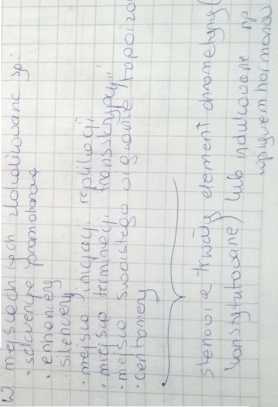 W miejscach tych zlokalizowane są:
· sekwencje promotorowe
· enhancery
· silencery
· miejsca inicjacji replikacji
· miejsca terminacji transkrypcji
· miejsca swoistego wiązania topoizo
· centromery
stanowią trwały element chromatyny (
konstytutywne) lub indukowane np
wpływem hormonów